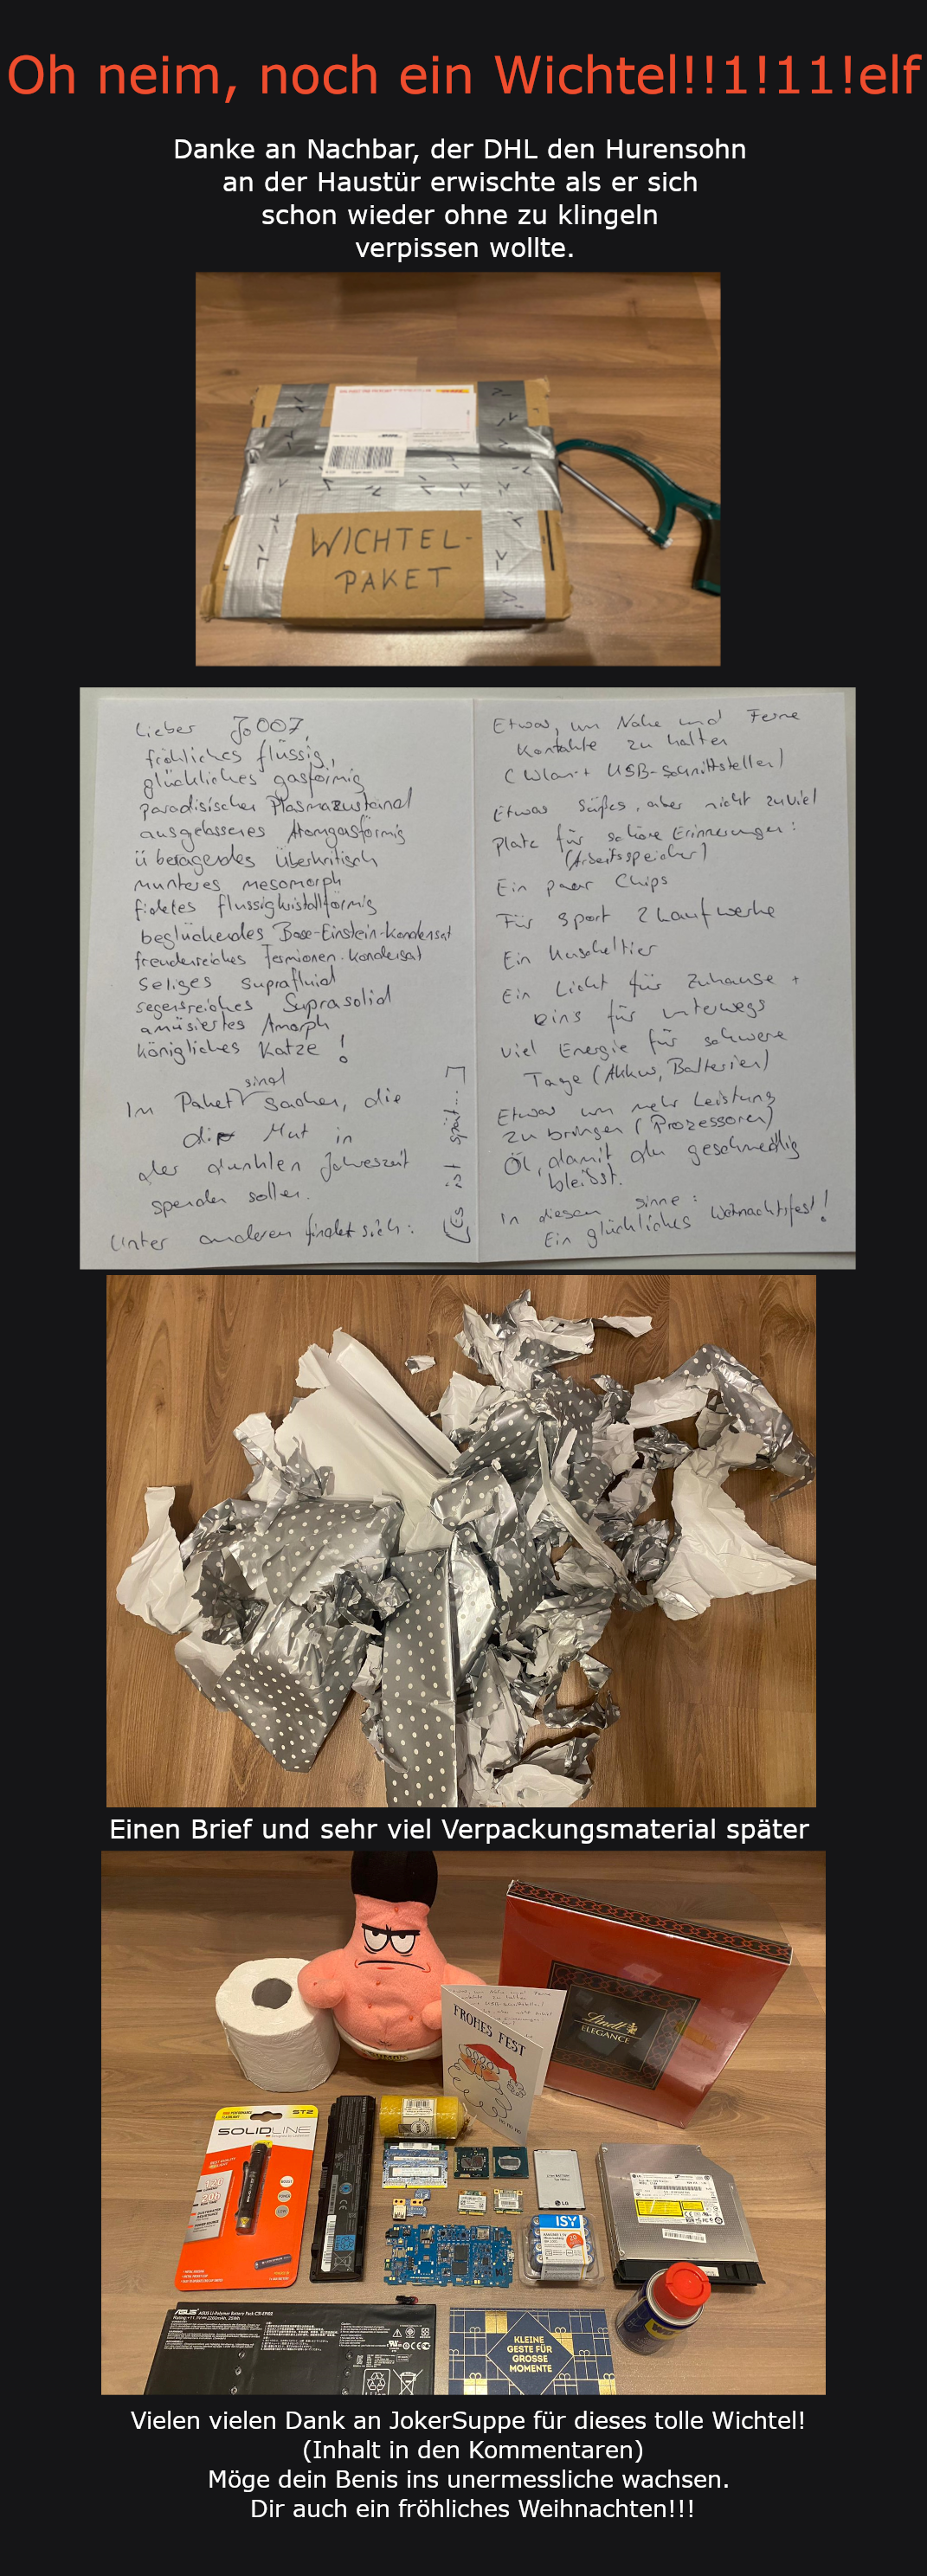 Oh neim, noch ein Wichtel!!1!11!elf
Danke an Nachbar, der DHL den Hurensohn
an der Haustür erwischte als er sich
schon wieder ohne zu klingeln
verpissen wollte.
WICHTEL-
PAKET
Lieber Jo007,
fröhliches flüssig,
glückliches gasförmig
paradisischer Plasmazustand
ausgelassenes Atomgasförmig
überagendes Überkritisch
munteres mesomorph
fideles flussigkristallförmig
beglückendes Bose-Einstein-Kondensat
freudenreiches Fermionen-Kondensat
Seliges suprafluid
segensreiches Suprasolid
amüsiertes Amorph
königliches Katze!
Im Paket sind sachen, die
die Mut in
der dunklen Jahreszeit
spenden sollen.
Unter anderen findet sich:
(Es ist spät...)
Etwas, um Nahe und Ferne
Kontakte zu halten
(Wlan + USB-Schnittstellen)
Etwas Süßes, aber nicht zuviel
Platz für schöne Erinnerungen:
(Arbeitsspeicher)
Ein paar Chips
Für Sport 2 Laufwerke
Ein Kuscheltier
Ein Licht für Zuhause +
eins für unterwegs
viel Energie für schwere
Tage (Akkus, Batterien)
Etwas um mehr Leistung
zu bringen (Prozessoren)
Öl, damit du geschmeidig
bleibst.
In diesen sinne:
Ein glückliches Weihnachtsfest!
Einen Brief und sehr viel Verpackungsmaterial später
FROHES FEST
HO HO HO
Lindt
ELEGANCE
ST2
SOLIDLINE
120
20h
LG
ISY
ASUS
KLEINE
GESTE FÜR
GROSSE
MOMENTE
Vielen vielen Dank an JokerSuppe für dieses tolle Wichtel!
(Inhalt in den Kommentaren)
Möge dein Benis ins unermessliche wachsen.
Dir auch ein fröhliches Weihnachten!!!